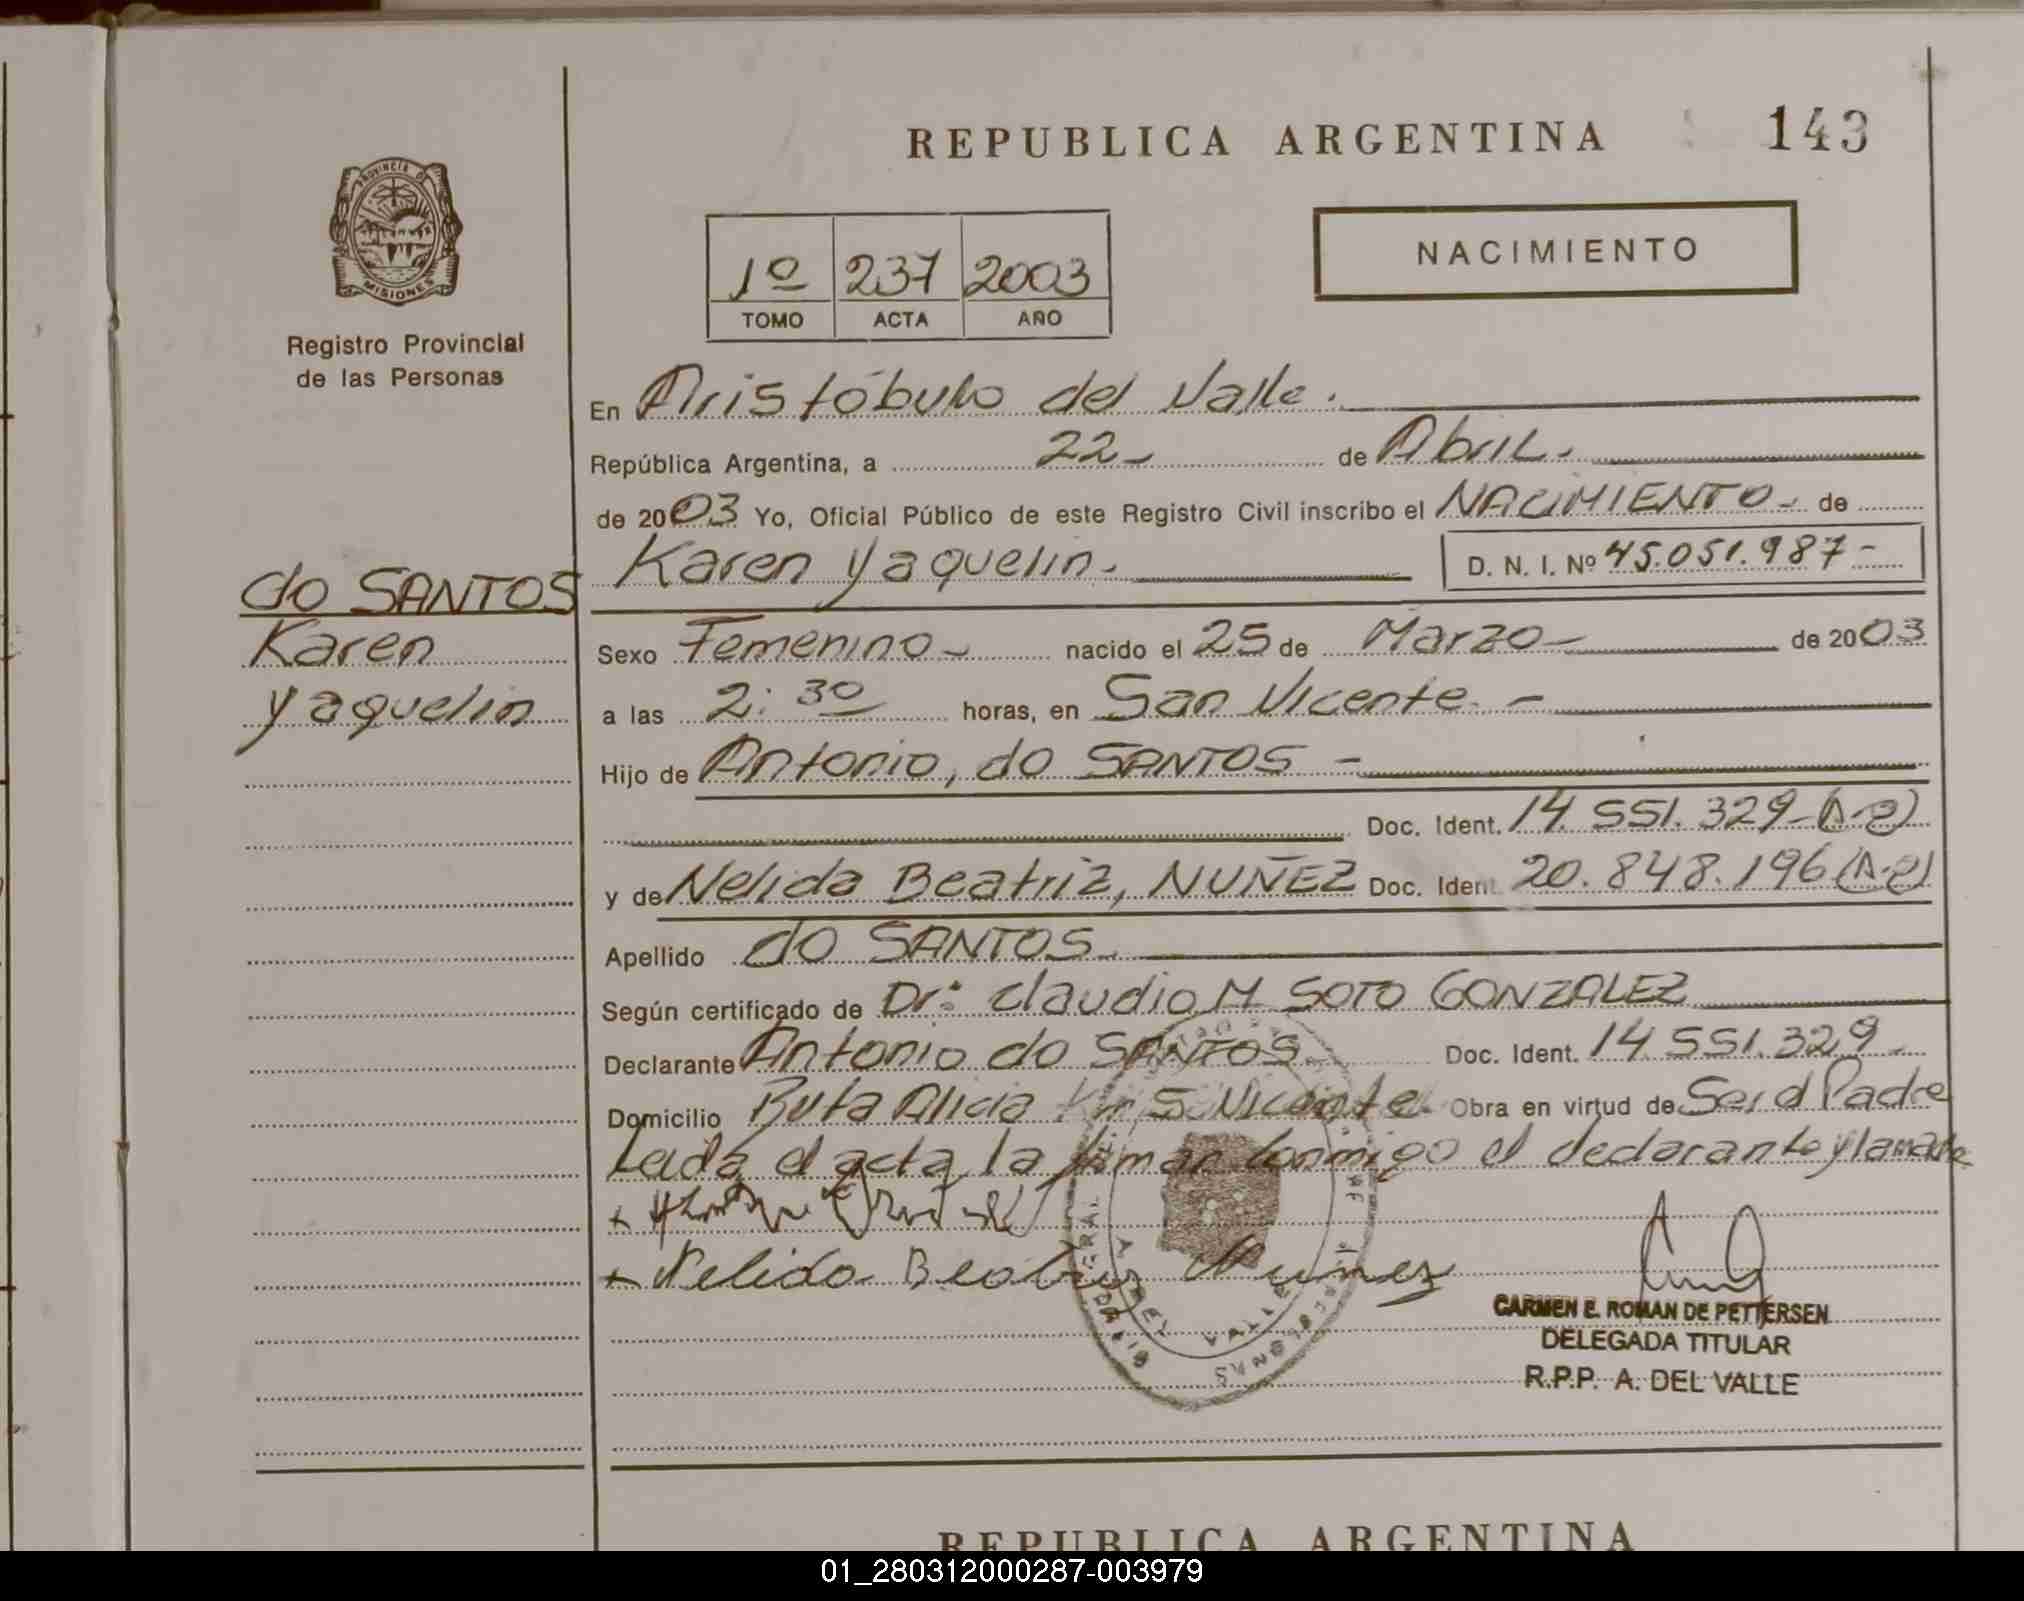 REPUBLICA ARGENTINA 143
PROVINCIA DE
MISIONES
Registro Provincial
de las Personas
1º 237 2003
TOMO ACTA AÑO
NACIMIENTO
En Aristóbulo del Valle.
República Argentina, a 22- de Abril.
de 2003 Yo, Oficial Público de este Registro Civil inscribo el NACIMIENTO- de
Karen Yaquelin.
D. N. I. Nº 45.051.987-
do SANTOS
Karen
Yaquelin
Sexo Femenino- nacido el 25 de Marzo- de 2003
a las 2:30 horas, en San Vicente.-
Hijo de Antonio, do SANTOS-
Doc. Ident. 14.551.329-
y de Nelida Beatriz, NUÑEZ Doc. Ident. 20.848.196
Apellido do SANTOS.
Según certificado de Dr: Claudio M SOTO GONZALEZ
Declarante Antonio do SANTOS- Doc. Ident. 14.551.329-
Domicilio Ruta Alicia S. Vicente. Obra en virtud de Ser el Padre
Leida el acta la firman conmigo el declarante y la madre
+ Nelida Beatriz Nunez
CARMEN E. ROMAN DE PETTERSEN
DELEGADA TITULAR
R.P.P. A. DEL VALLE
REPUBLICA ARGENTINA
01_280312000287-003979